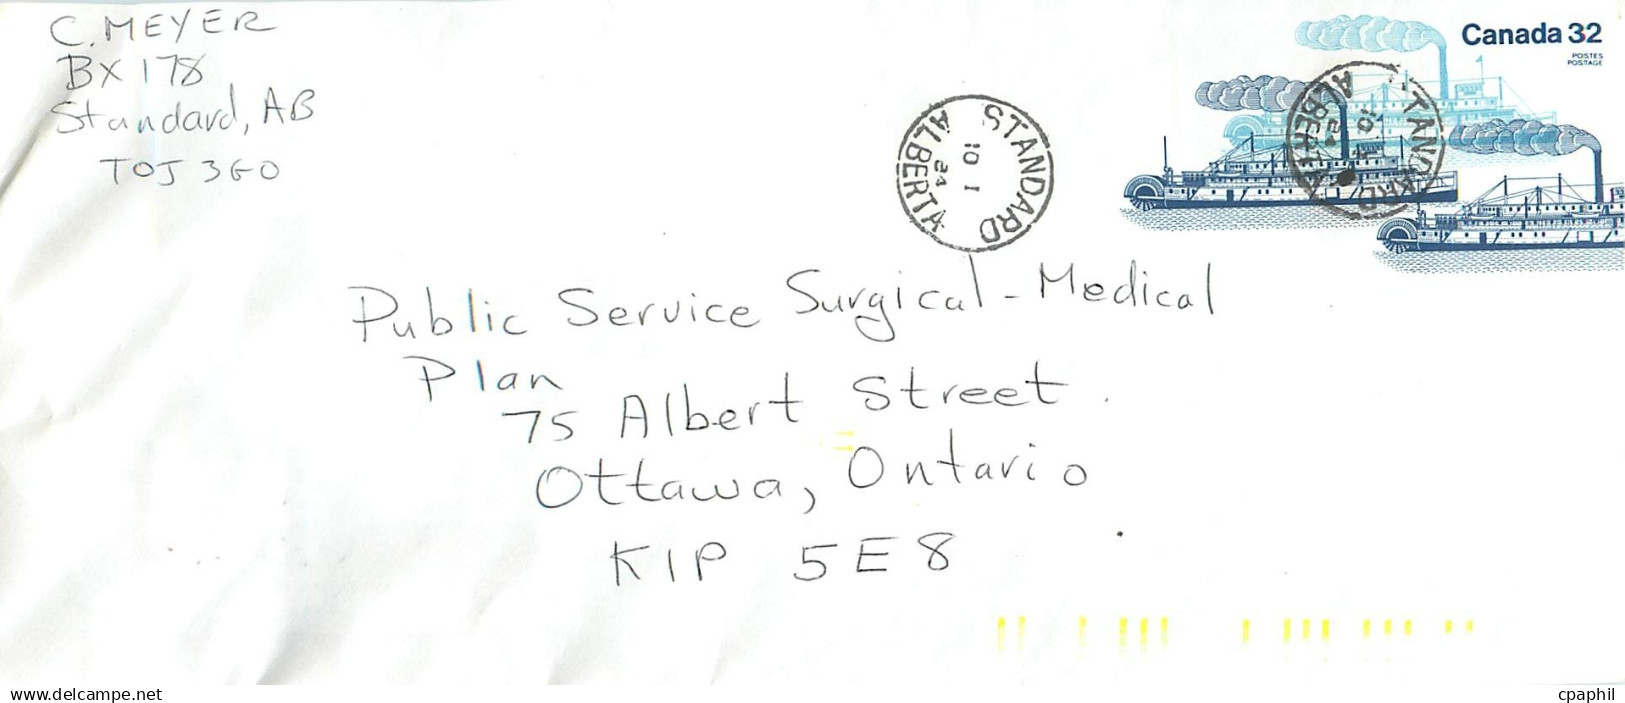 C. MEYER
BX 178
Standard, AB
TOJ 3G0
Canada 32
POSTES
POSTAGE
STANDARD
10 I
84
ALBERTA
STANDARD
10 I
84
ALBERTA
Public Service Surgical-Medical
Plan
75 Albert Street
Ottawa, Ontario
K1P 5E8
Plus de photos sur delcampe.net
cpaphil